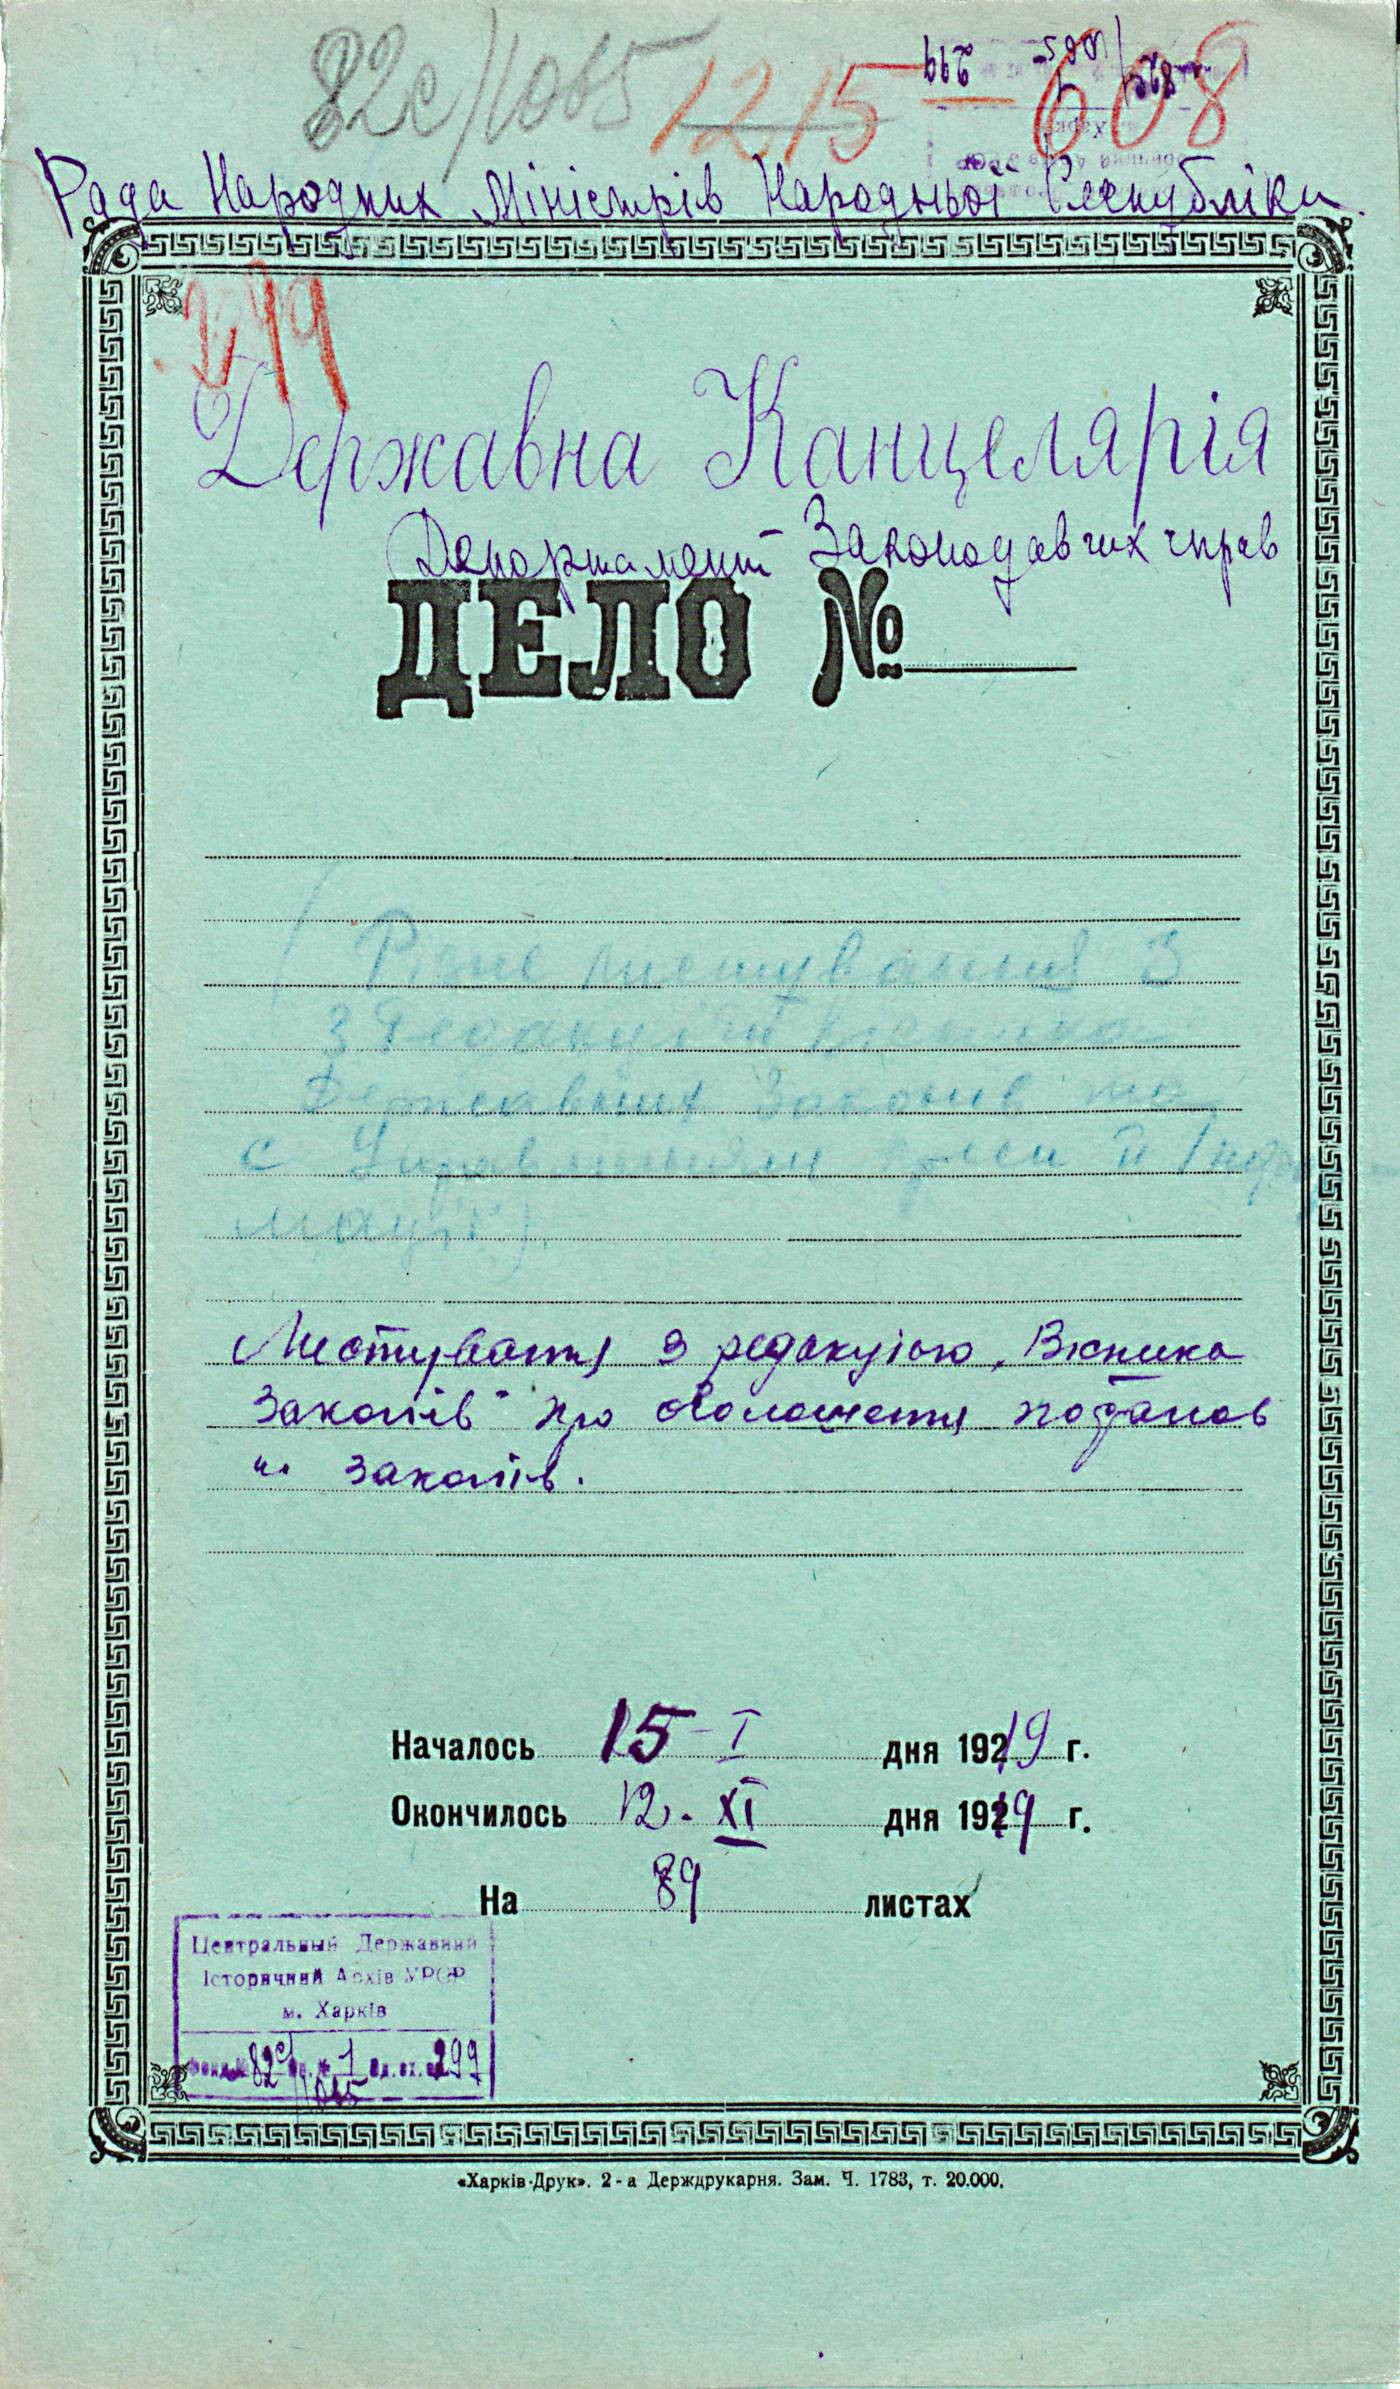 82с/1065 1215 608
299
Рада Народних Міністрів Народньої Республіки.
299
Державна Канцелярія
Департамент Законодавчих справ
ДЕЛО №
Різне листування З
з Редакцій Вісника
Державних Законів та
с Управлінням Преси й Інфор
мації).
Листування з редакцією „Вісника
Законів" про оголошення постанов
и законів.
Началось 15-I дня 19219 г.
Окончилось 12.XI дня 19219 г.
На 89 листах
Центральный Державний
Історичний Архів УРСР
м. Харків
Фонд № 82с/1065 Оп. № 1 Од. зх. № 299
«Харків-Друк». 2-а Держдрукарня. Зам. Ч. 1783, т. 20.000.